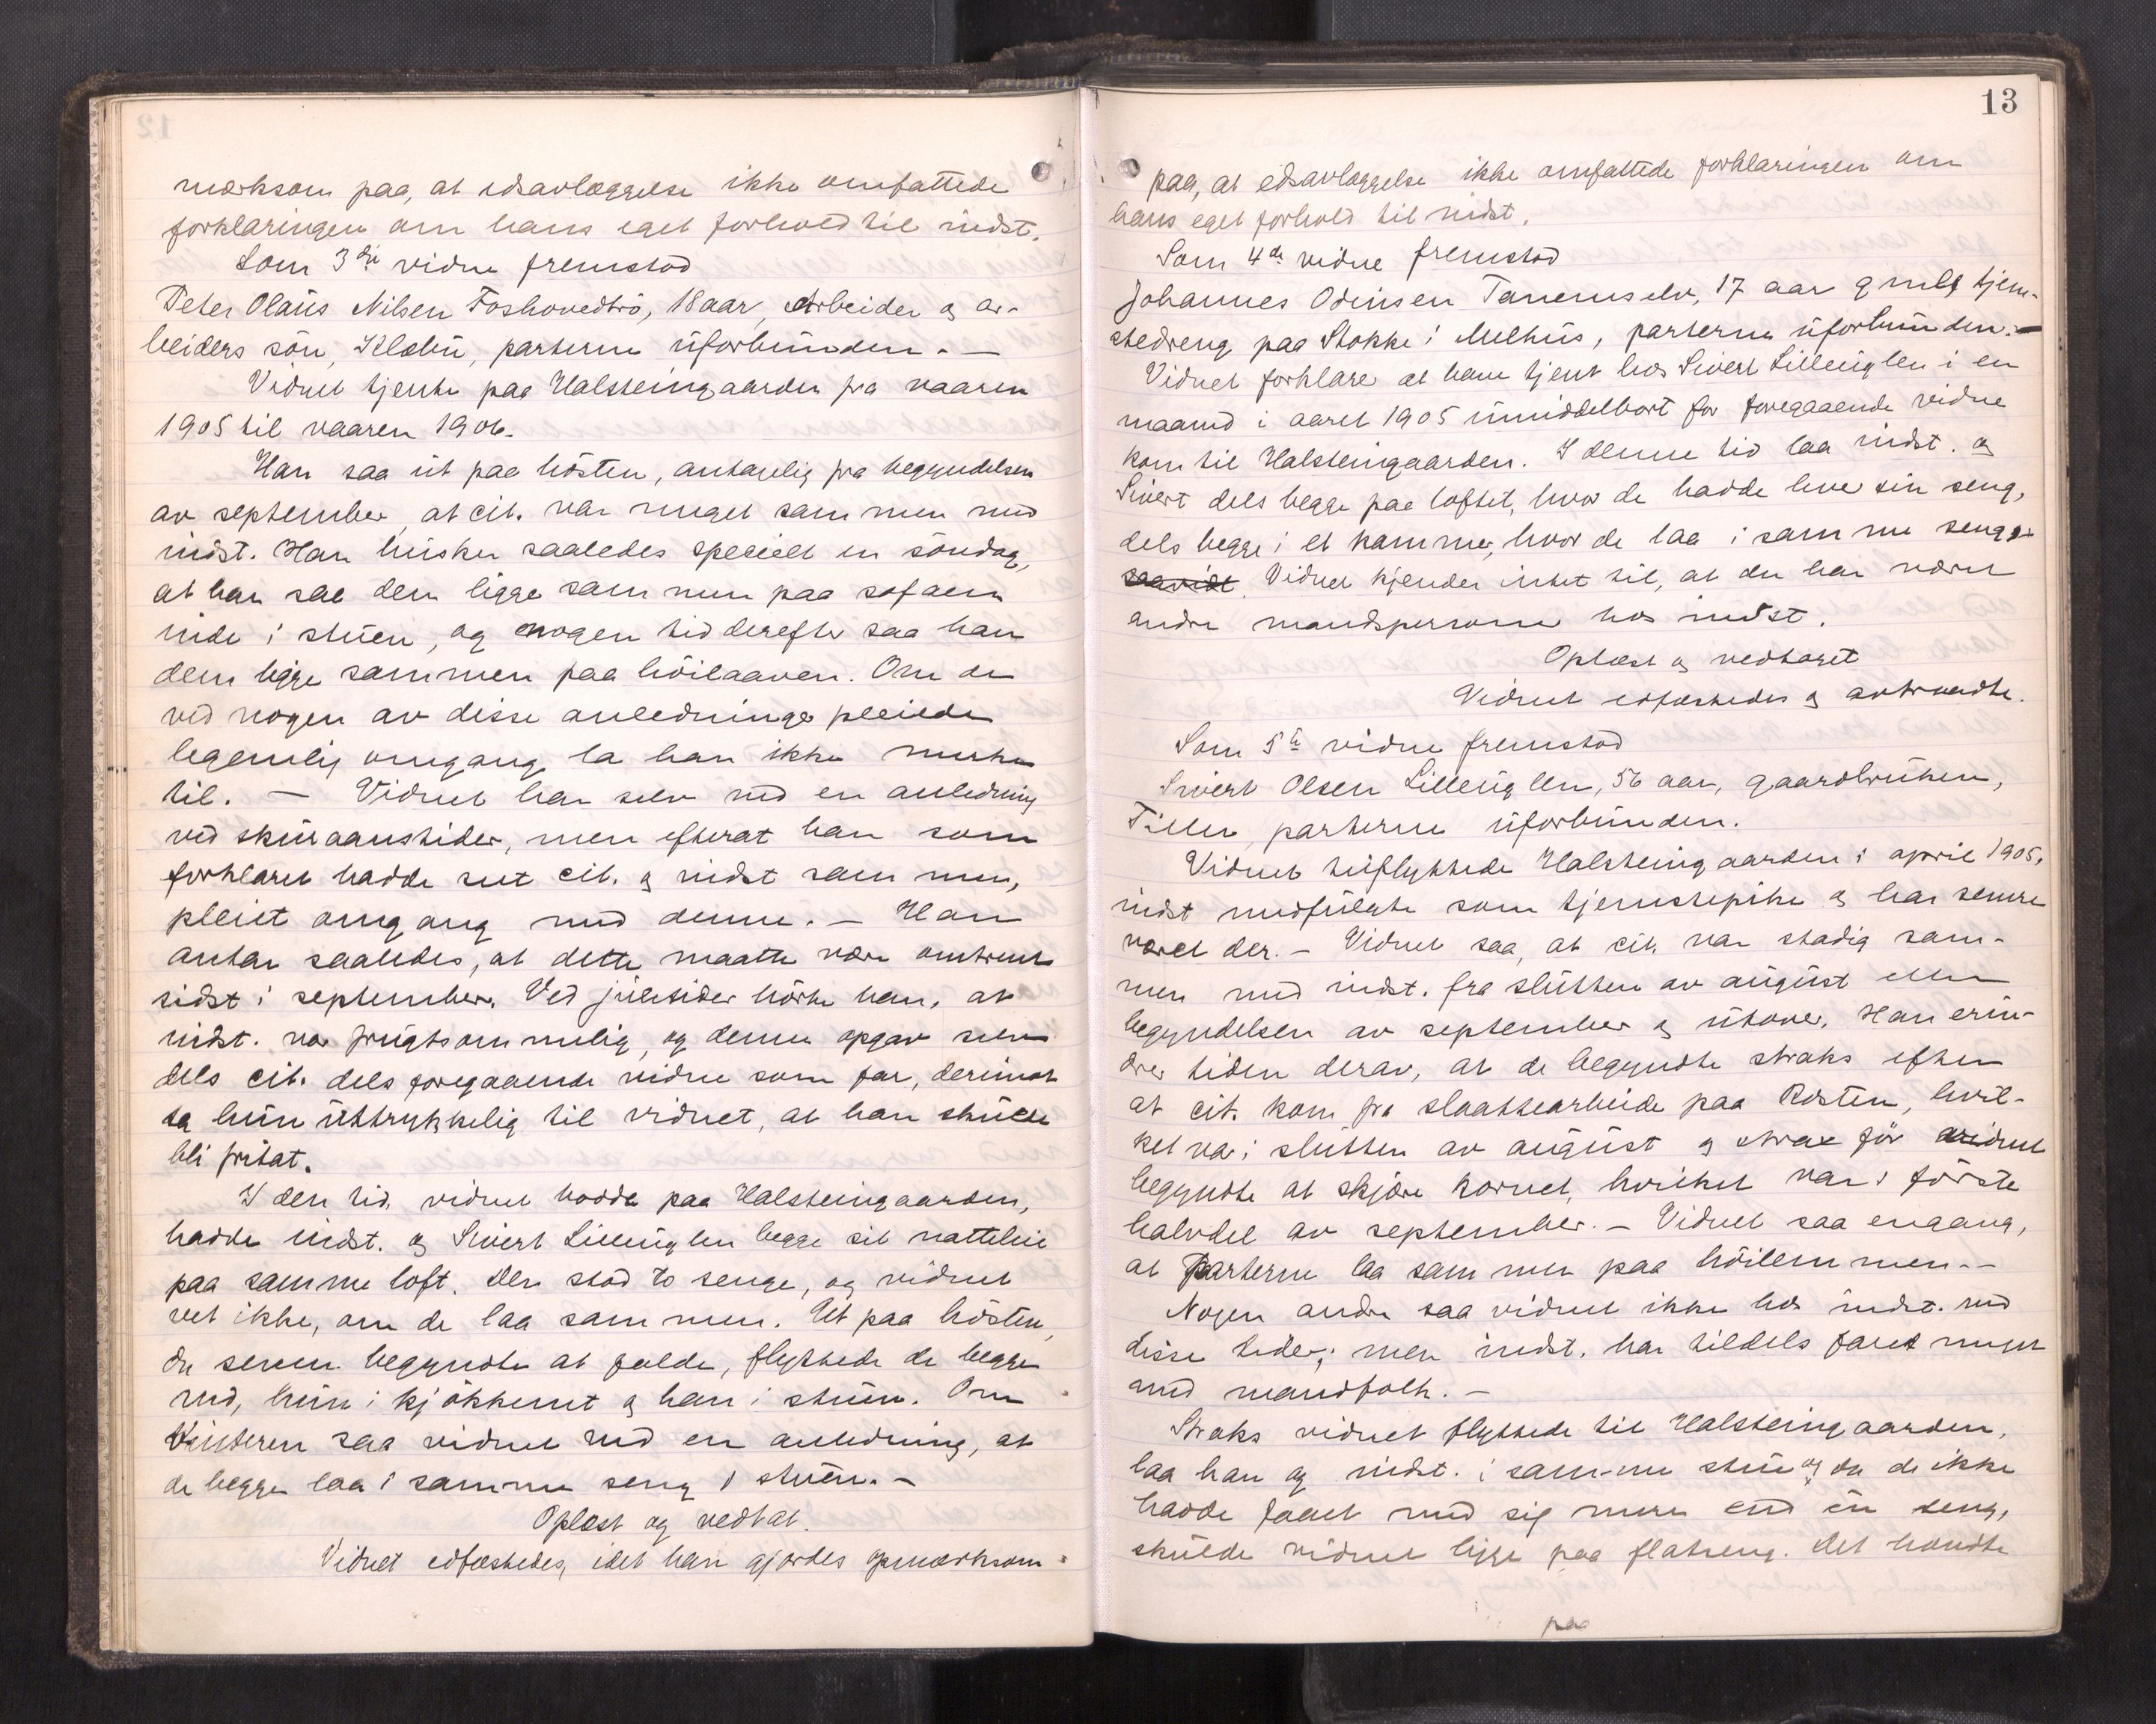 mærksom paa, at edsavlæggelse ikke omfattede
forklaringen om hans eget forhold til indst.
Som 3die vidne fremstod
Peter Olaus Nilsen Foshovedbrö, 18 aar, Arbeider og ar-
beiders sön, Klæbu, parterne uforbunden. —
Vidnet tjente paa Halsteingaarden fra vaaren
1905 til vaaren 1906.
Han saa ut paa hösten, antagelig fra begyndelsen
av september, at cit. var meget sammen med
indst. Han husker saaledes specielt en söndag,
at han saa dem ligge sammen paa sofaen
inde i stuen, og nogen tid derefter saa han
dem ligge sammen paa höilaaven. Om de
ved nogen av disse anledninger pleiede
legemlig omgang la han ikke merke
til. — Vidnet har selv ved en anledning
ved skuraanstider, men efterat han som
forklaret hadde seet cit. og indst sammen,
pleiet omgang med denne. — Han
antar saaledes, at dette maatte være omtrent
sidst i september. Ved juletider hörte han, at
indst. var frugtsommelig, og denne opgav selv
dels cit. dels foregaaende vidne som far, derimot
sa hun uttrykkelig til vidnet, at han skulde
bli fritat.
I den tid vidnet bodde paa Halsteingaarden,
hadde indst. og Sivert Lilleuglen begge sit natteleie
paa samme loft. Der stod to senge, og vidnet
vet ikke, om de laa sammen. Ut paa hösten,
da sneen begyndte at falde, flyttede de begge
ned, hun i kjökkenet og han i stuen. Om
Vinteren saa vidnet ved en anledning, at
de begge laa i samme seng i stuen. —
Oplæst og vedtat.
Vidnet edfæstedes, idet han gjordes opmærksom
13
paa, at edsavlæggelse ikke omfattede forklaringen om
hans eget forhold til indst.
Som 4de vidne fremstod
Johannes Odinsen Tanemselv, 17 aar gml, tjene-
stedreng paa Stokke i Melhus, parterne uforbunden. —
Vidnet forklarer at have tjent hos Sivert Lilleuglen i en
maaned i aaret 1905 umiddelbart for foregaaende vidne
kom til Halsteingaarden. I denne tid laa indst. og
Sivert dels begge paa loftet, hvor de hadde hver sin seng,
dels begge i et kammer, hvor de laa i samme seng.
saavidt. Vidnet kjender intet til, at der har været
andre mandspersone hos indst.
Oplæst og vedtaget
Vidnet edfæstedes og avtraadte.
Som 5te vidne fremstod
Sivert Olsen Lilleuglen, 56 aar, gaardbruker,
Tiller, parterne uforbunden.
Vidnet tilflyttede Halsteingaarden i april 1905,
indst medfulgte som tjenestepike og har senere
været der. — Vidnet saa, at cit. var stadig sam-
men med indst. fra slutten av august eller
begyndelsen av september og utover. Han erin-
drer tiden derav, at de begyndte straks efter
at cit. kom fra slaattearbeide paa Rosten, hvil-
ket var i slutten av august og strax för vidnet
begyndte at skjære kornet, hvilket var i förste
halvdel av september. — Vidnet saa engang,
at Parterne laa sammen paa höilemmen. —
Nogen andre saa vidnet ikke hos indst. ved
disse tider; men indst. har tildels faret meget
med mandfolk. —
Straks vidnet flyttede til Halsteingaarden,
laa han og indst. i samme stue og da de ikke
hadde faaet med sig mere end én seng,
skulde vidnet ligge paa flatseng. Det hændte
paa